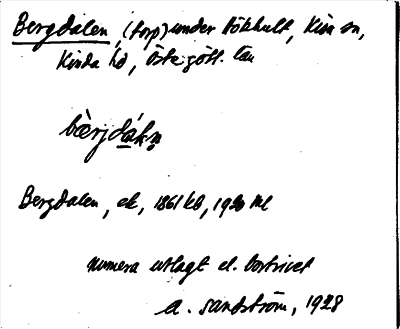 Bergdalen, (torp) under Bökhult, Kisa sn,
Kinda hd, Östergötl. län
bæ̀rjdáḷn̥
Bergdalen, ek, 1861 kb, 1920 ml
numera utlagt el. bortrivet
A. Sandström, 1928